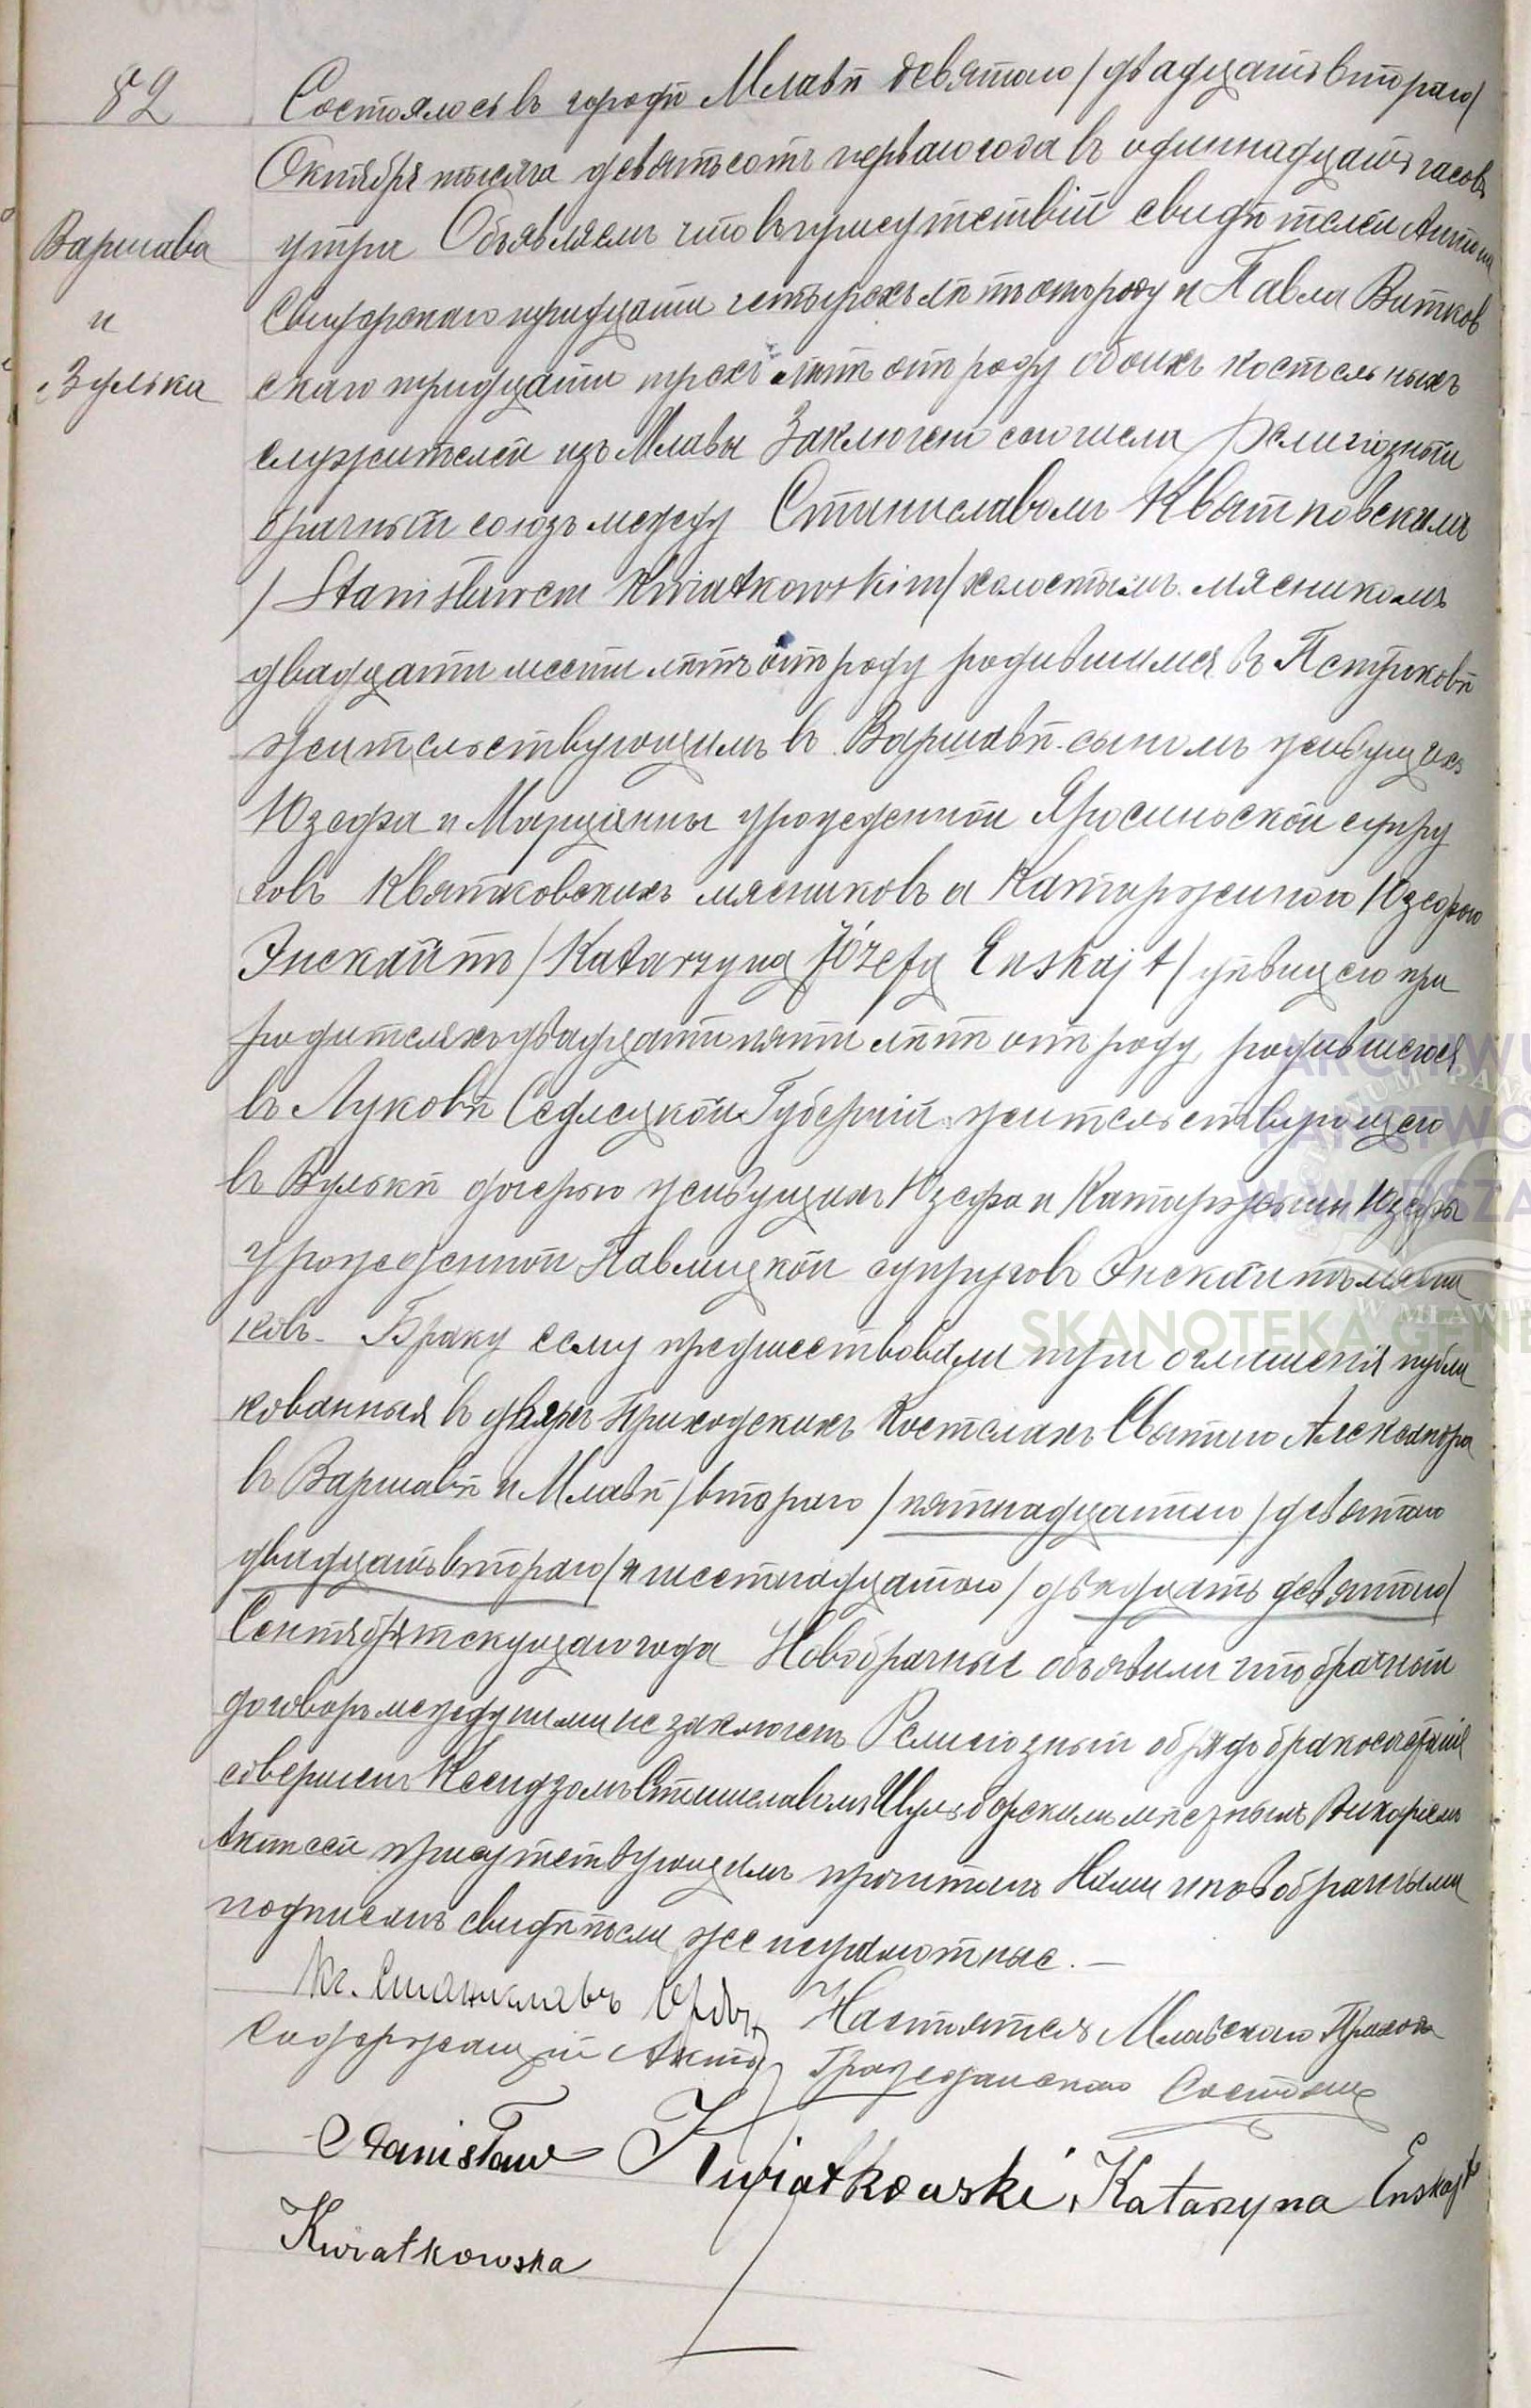 82
Варшава
и
Вулька
Состоялось въ городѣ Млавѣ девятаго /двадцать втораго/
Октября тысяча девятьсотъ перваго года въ одиннадцать часовъ
утра Объявляемъ что въ присутствіи свидѣтелей Антона
тридцати четырехъ лѣтъ отъ роду и Павла Витков
скаго тридцати трехъ лѣтъ отъ роду обоихъ костельныхъ
служителей изъ Млавы Заключенъ сего числа религіозный
брачный союзъ между Станиславомъ Квятковскимъ
/Stanisławem Kwiatkowskim/ холостымъ мясникомъ
двадцати шести лѣтъ отъ роду родившимся въ Петрковѣ
жительствующимъ въ Варшавѣ сыномъ живущихъ
Юзефа и Марціанны урожденной Яросиньской супру
говъ Квятковскихъ мясниковъ и Катаржиною Юзефою
Энскайтъ /Katarzyną Józefą Enskajt/ дѣвицею при
родителяхъ двадцати пяти лѣтъ отъ роду, родившеюся
въ Луковѣ Седлецкой Губерніи жительствующею
въ Вулькѣ дочерью живущихъ Юзефа и Катаржины Юзефы
урожденной Павлицкой супруговъ Энскайтъ
ковъ. Браку сему предшествовали три оглашенія публи
кованныя въ двухъ Приходскихъ Костелахъ Святаго Александра
въ Варшавѣ и Млавѣ /втораго /пятнадцатаго/ девятаго
двадцать втораго/ и шестнадцатаго /двадцать девятаго/
Сентября текущаго года Новобрачные объявили что брачный
договоръ между ними не заключенъ Религіозный обрядъ бракосочетанія
совершенъ Ксендзомъ Станиславомъ мѣстнымъ Викаріемъ
Актъ сей присутствующимъ прочитанъ Нами и новобрачными
подписанъ свидѣтели же неграмотные. —
Кс. Станиславъ Настоятель Млавскаго Прихода
Содержащій Акты Гражданскаго Состоянія
Stanisław Kwiatkowski, Katarzyna Enskajt
Kwiatkowska
ARCHIWU
PAŃSTWO
W WARSZA
W MŁAWI
SKANOTEKA GENE